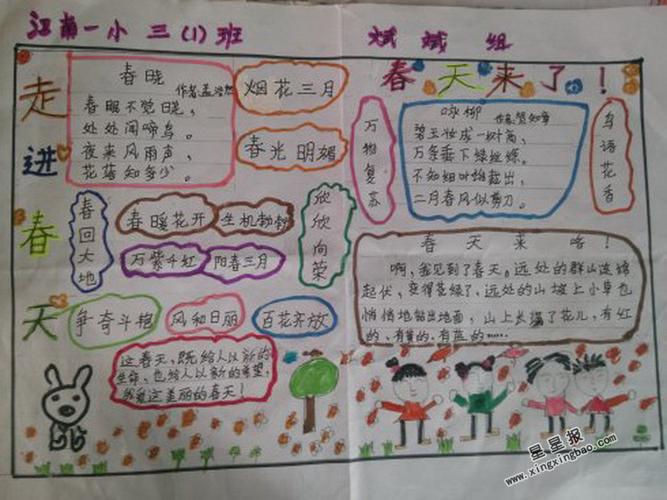 江南一小 三(1)班
斌斌 组
走进春天
春晓
作者:孟浩然
春眠不觉晓,
处处闻啼鸟。
夜来风雨声,
花落知多少。
烟花三月
春光明媚
春回大地
春暖花开
生机勃勃
万紫千红
阳春三月
欣欣向荣
争奇斗艳
风和日丽
百花齐放
这春天,既给人以新的
生命,也给人以新的希望,
我爱这美丽的春天!
春天来了!
万物复苏
咏柳
作者:贺知章
碧玉妆成一树高,
万条垂下绿丝绦。
不知细叶谁裁出,
二月春风似剪刀。
鸟语花香
春天来咯!
啊,我见到了春天。远处的群山连绵
起伏,变得苍绿了,远处的山坡上小草也
悄悄地钻出地面,山上长满了花儿,有红
的、有黄的、有蓝的……
星星报
www.xingxingbao.com